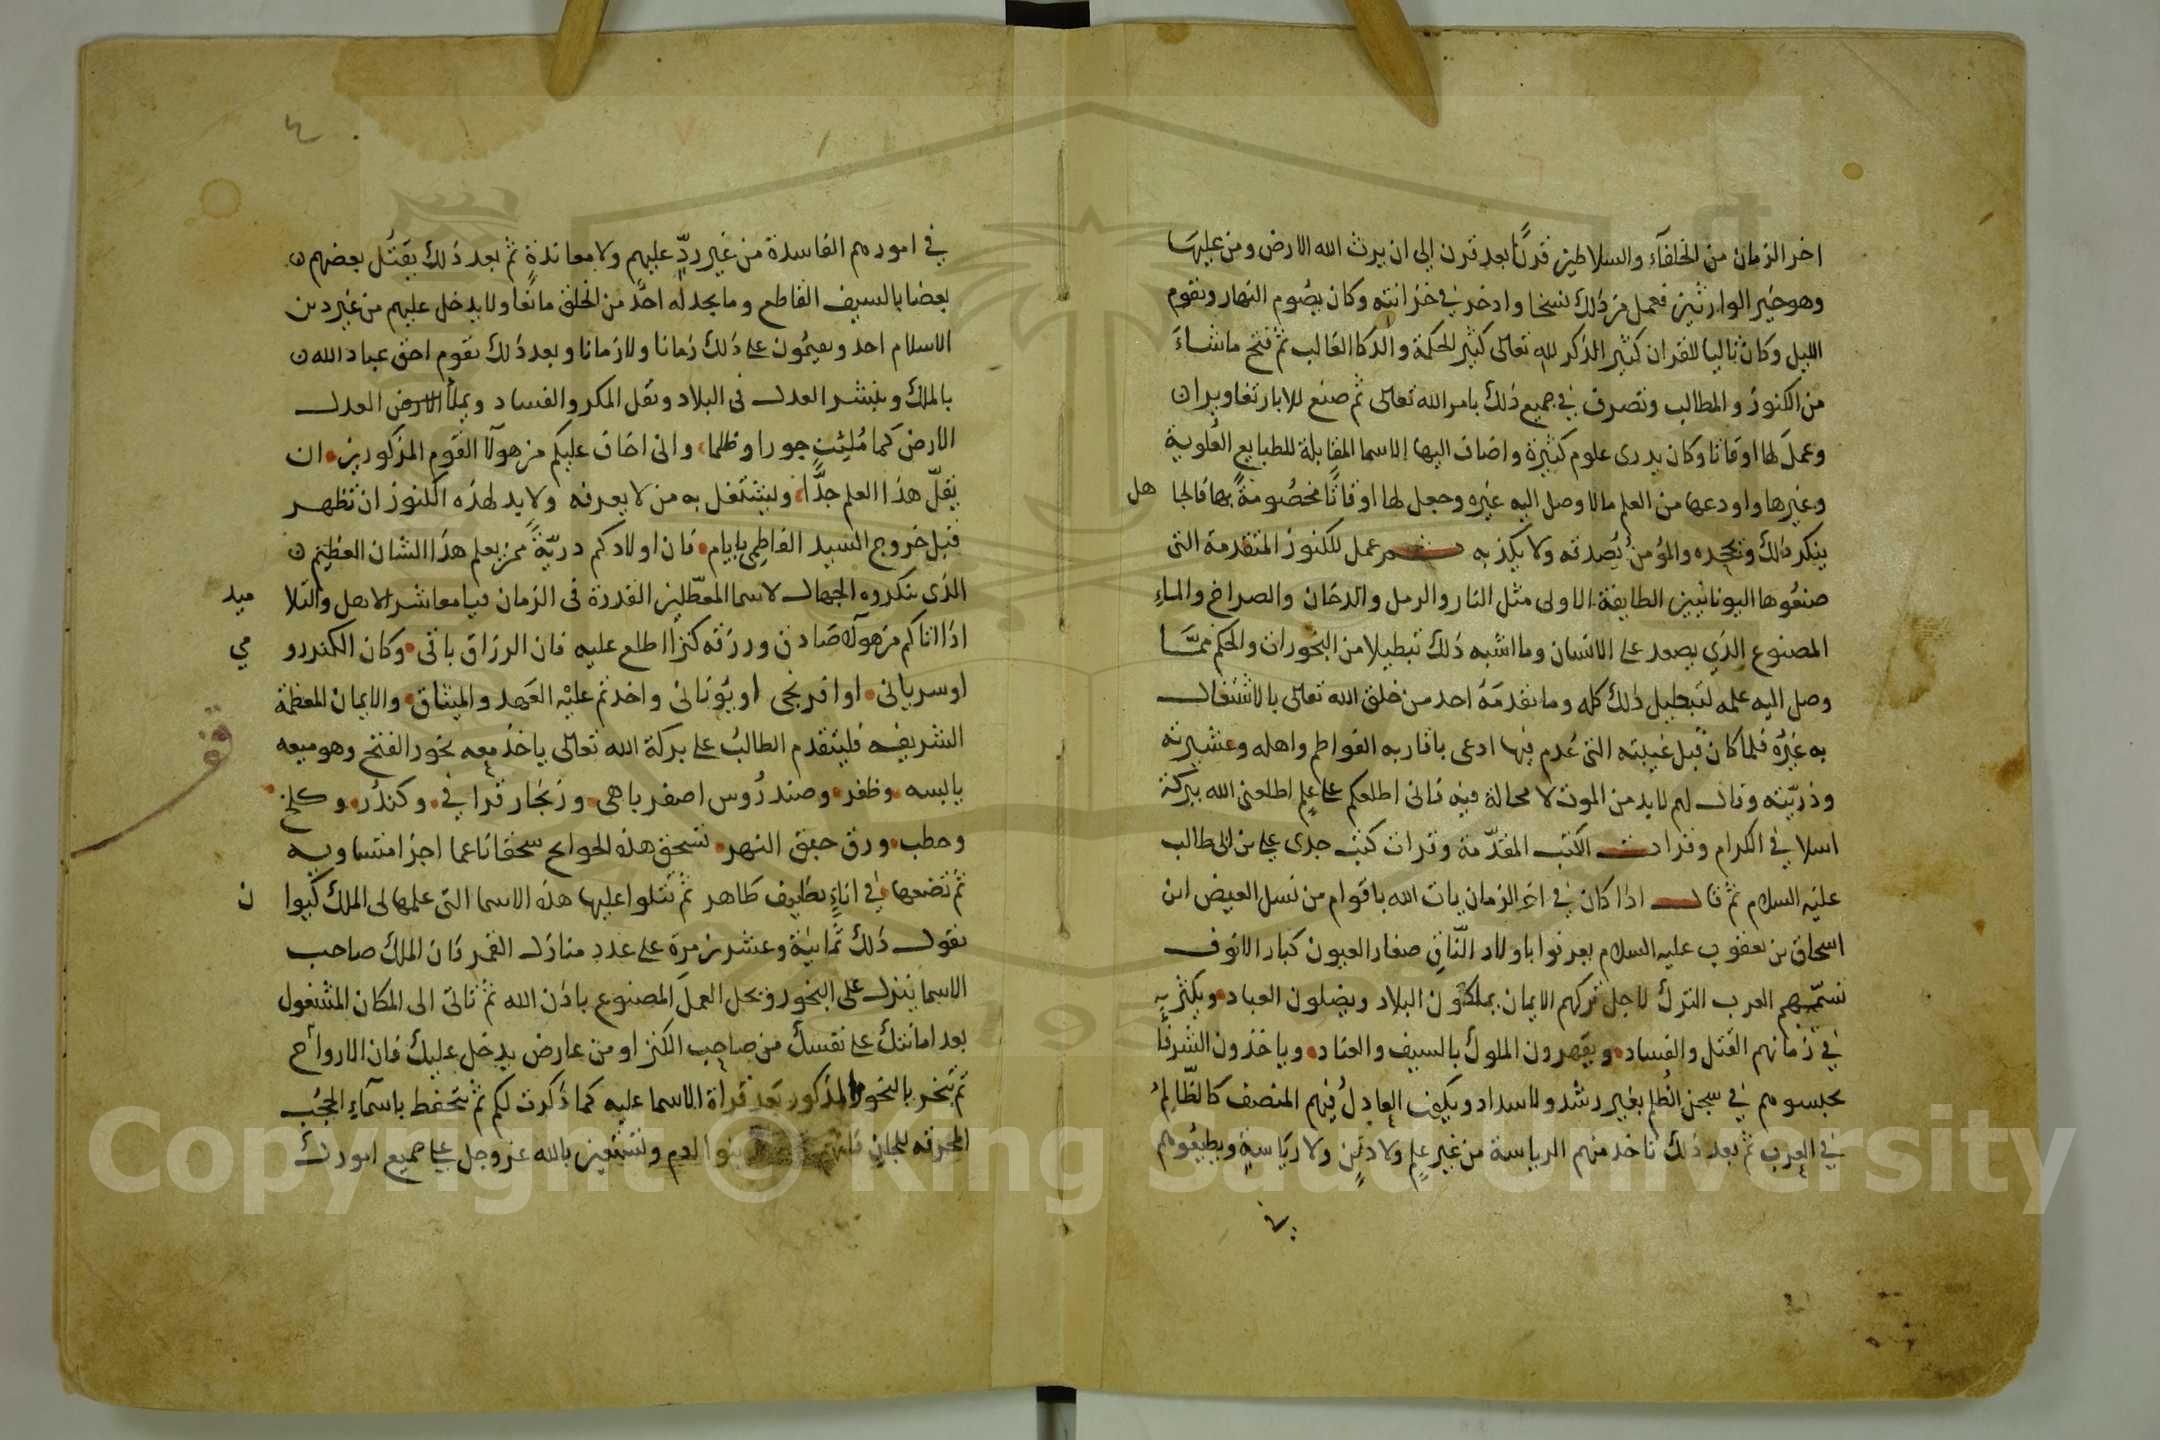 اخر الزمان من الخلفآء والسلاطين قرنًا بعد قرن الى ان يرث الله الارض ومن عليها
وهو خير الوارثين فعمل من ذلك نسخا وادخر في خزانته وكان يصُوم النهار ويقوم
الليل وكان تاليا للقران كثير الذكر لله تعالى كثير الحكمة والذكا الغالب ثم فتح ماشاءَ
من الكنوز والمطالب وتصرف في جميع ذلك بامر الله تعالى ثم صنع للابار تغاويران
وعمل لها اوقاتا وكان يدرى علوم كثيرة واضاف اليها الاسما المقابلة للطبايع العُلوية
وغيرها واودعها من العلم مالا وصل اليه غيره وجعل لها اوقاتًا مخصُوصةً بها فالجا
هل
ينكر ذلك ويجحده والمؤمن يُصدقه ولا يكذبه ثم عمل للكنوز المتقدمة التى
صنعُوها اليونانيين الطايفة الاولى مثل النار والرمل والدخان والصراخ والماءِ
المصنوع الذي يصعد على الانسان وما اشبه ذلك تبطيلا من البخورات والحكم ممَّا
وصل اليه علمه لتبطيل ذلك كله وما تقدمَهُ احد من خلق الله تعالى بالاشتغال
به غيرُه فلما كان قبل غيبته التى عُدم فيها ادعى باقاربه الفواطم واهله وعشيرته
وذريّته وقال لهم لابد من الموت لا محالة فيه فانى اطلعكم على علمٍ اطلعنى الله ببركة
اسلافي الكرام وقرات الكتب المقدّمة وقرات كتب جدى على بن ابى طالب
عليه السلام ثم قال اذا كان في اخر الزمان يات الله باقوام من نسل العيص ابن
اسحاق بن يعقوب عليه السلام يعرفوا باولاد النّاقِ صغار العيون كبار الانوف
تسمّيهم العرب الترك لاجل تركهم الايمان يملكون البلاد ويضلون العباد ويكثر بهِ
في زمانهم القتل والفساد ويقهرون الملوك بالسيف والعناد وياخذون الشرفا
يحبسوهم في سجن الظُلم بغير رشد ولا سداد ويكون العادلُ فيهم المنصف كالظّالِمُ
في العرب ثم بعد ذلك تاخذ منهم الرياسة من غير علمٍ ولا دينٍ ولا رياسةٍ ويطيعُوهم
في
٤
في امورهم الفاسدة من غير ردٍّ عليهم ولا معاندةٍ ثم بعد ذلك يقتُل بعضهم
بعضا بالسيف القاطع وما يجد له احدٌ من الخلق مانعًا ولا يدخل عليهم من غير دين
الاسلام احد ويقيمُون على ذلك زمانا ولازمانا وبعد ذلك يقوم احق عباد الله
بالملك وينشر العدل فى البلاد ويقل المكر والفساد ويملأ الارض العدل
الارض كما مُلِئت جورا وظلما وانى اخاف عليكم من هولآ القوم المذكورين ان
يقلّ هذا العلم جدًّا ويشتغل به من لا يعرفه ولا بد لهذه الكنوز ان تظهر
قبل خروج السيد الفاطمى بايام فان اولادكم ذريّةً ممن يعلم هذا الشان العظيم
الذى ينكروه الجهال لاسما المعطّلين القدرة فى الزمان فيامعاشر الاهل والتلا
ميد
اذا اتاكم من هولآ صادق ورزقه كنزًا اطلع عليه فان الرزاق باقى وكان الكنز رو
مي
او سريانى او افرنجى او يُونانى واخذتم عليْه العَهد والميثاق والايمان المعظمة
الشريفه فليتقدم الطالبُ على بركة الله تعالى ياخذ معه بخور الفتح وهو ميعه
يابسه وظفر وصندرُوس اصفر باهى وزنجار قراقي وكندُر وكلخ
وحطب ورق حبق النهر تسحق هذه الحوايج سحقا ناعما اجزا متساويه
ثم تضعها في اناءٍ نظيف طاهر ثم تتلوا عليها هذه الاسما التى علمها لى الملك كيوا
ن
تقول ذلك ثمانيَة وعشرين مرة على عدد منازل القمر فان الملك صاحب
الاسما ينزل على البخور ويحل العمل المصنوع باذن الله ثم تاتى الى المكان المشغول
بعد امانتك على نفسك من صاحب الكنز او من عارض يدخل عليك فان الارواح
ثم تبخر بالبخور المذكور بَعد قرأة الاسما عليه كما ذكرت لكم ثم تتحفظ باسمآءِ الحجُب
المحرقه للجان بنوا الدم وتستعين بالله عز وجل على جميع امورك
Copyright © King Saud University
195